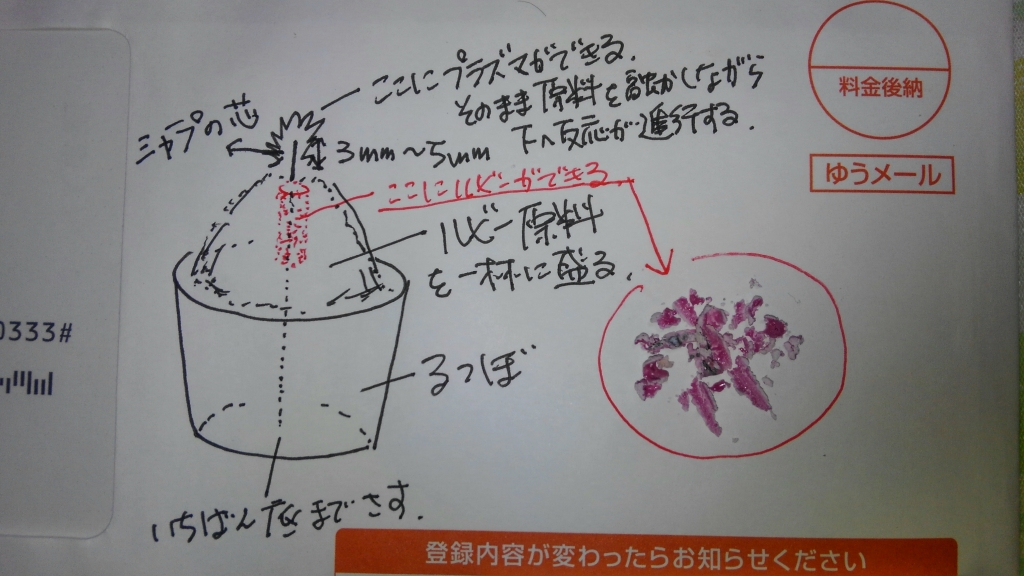 ここにプラズマができる.
そのまま原料を融かしながら
下へ反応が進行する.
シャープの芯
3mm〜5mm
ここにルビーができる.
ルビー原料
を一杯に盛る.
るつぼ
いちばん底までさす.
料金後納
ゆうメール
0333#
登録内容が変わったらお知らせください